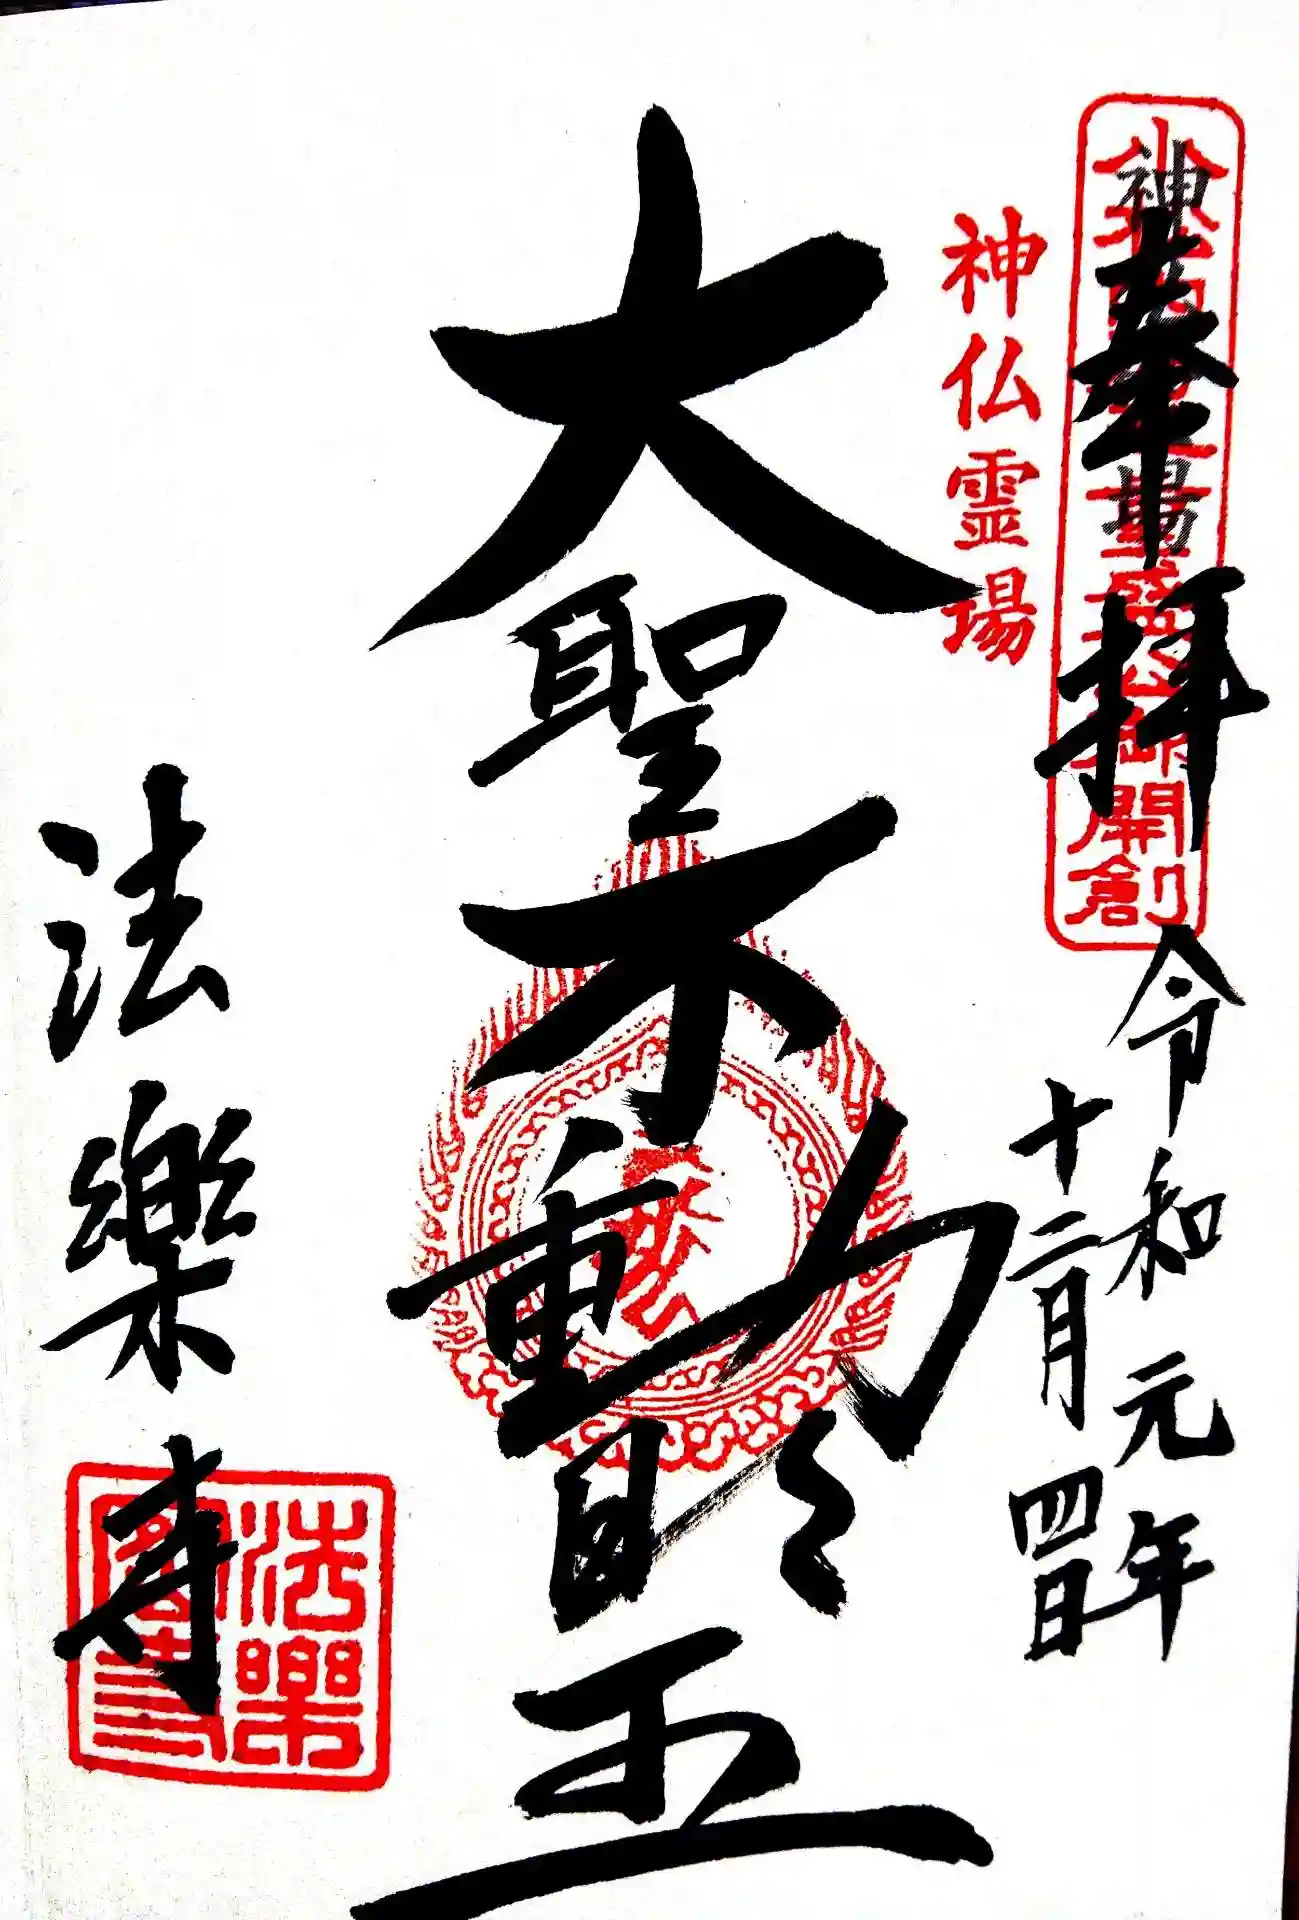 奉拝
令和元年
十二月四日
神仏霊場
開創
大聖不動明王
法樂寺
法樂